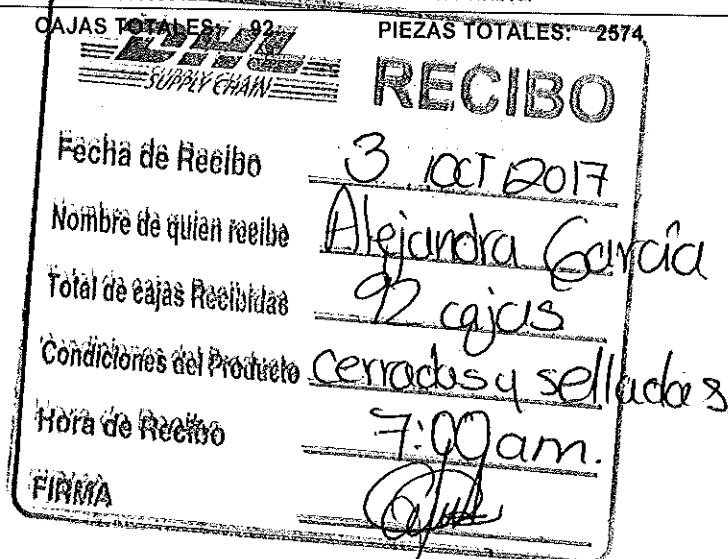 CAJAS TOTALES: 92 PIEZAS TOTALES: 2574
DHL
SUPPLY CHAIN
RECIBO
Fecha de Recibo 3 / OCT / 2017
Nombre de quien recibe Alejandra García
Total de cajas Recibidas 92 cajas
Condiciones del Producto cerradas y selladas
Hora de Recibo 7:00 am.
FIRMA